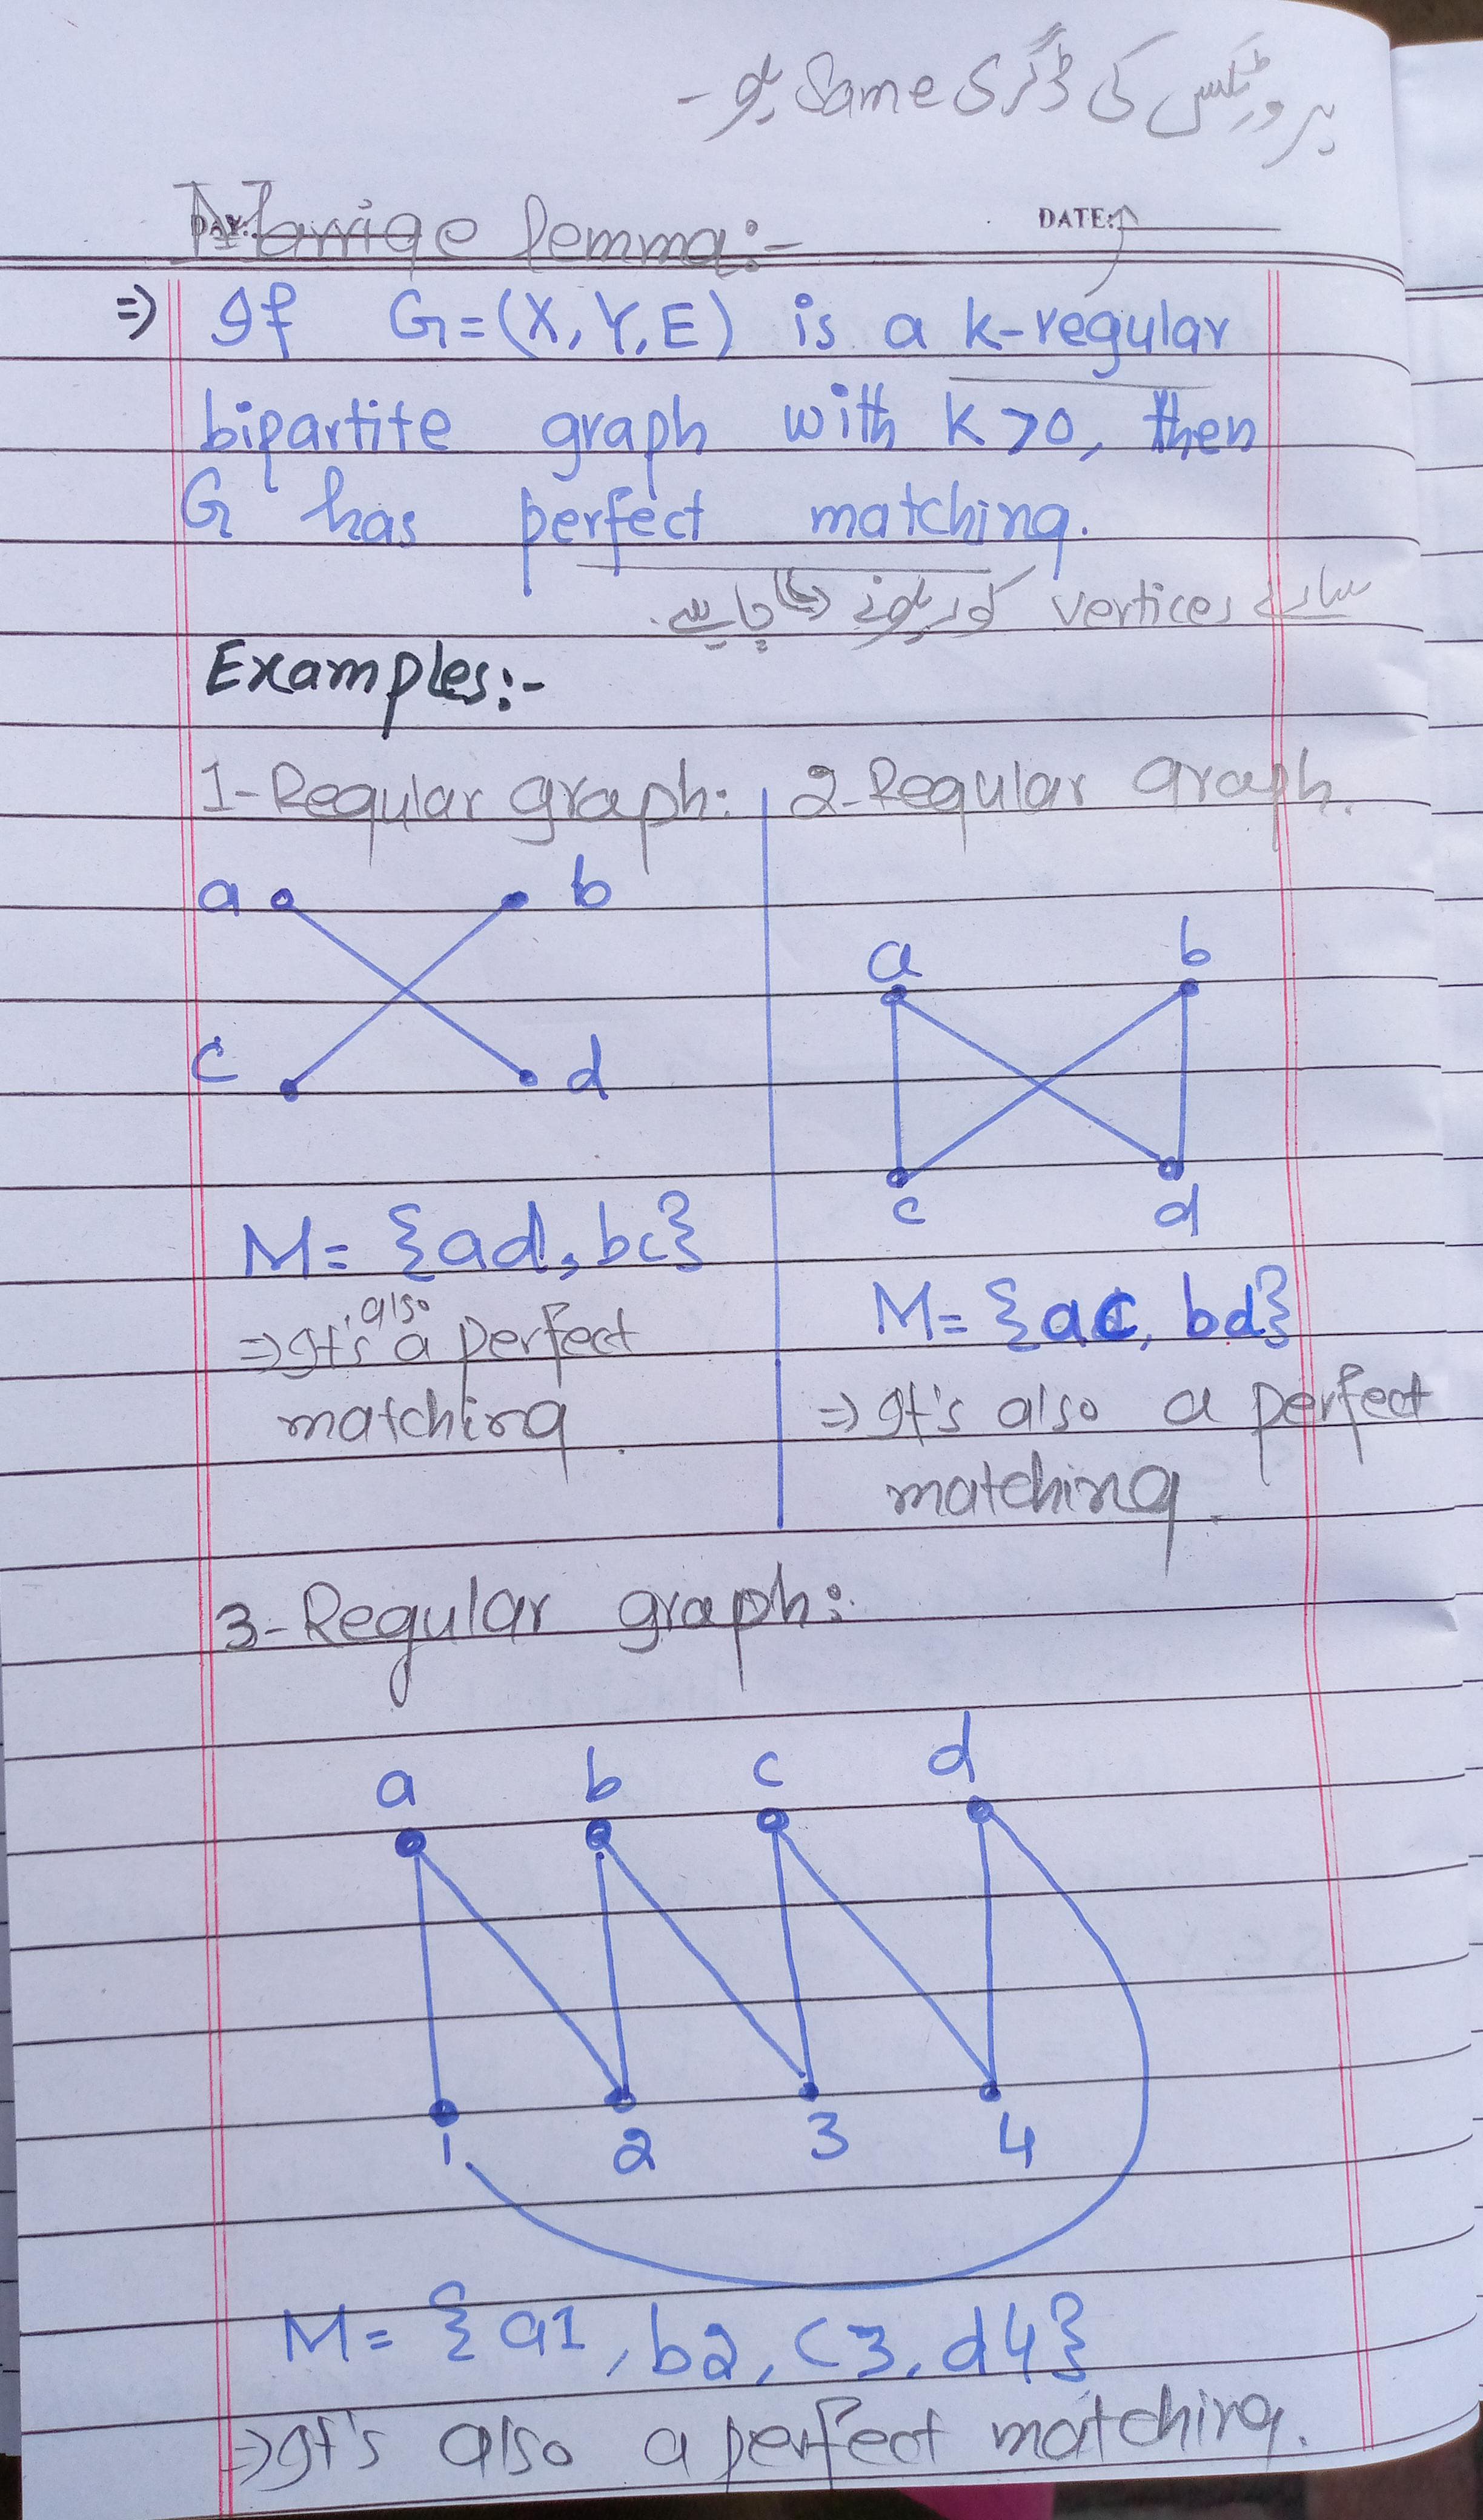 ہر ورٹیکس کی ڈگری Same ہو -
Marriage lemma:-
DAY: DATE:
=> If G=(X,Y,E) is a k-regular
bipartite graph with k>0, then
G has perfect matching.
سارے vertices کور ہونے چاہیے.
Examples:-
1-Regular graph: 2-Regular graph.
a b
a b
c d
c d
M= {ad, bc}
M= {ac, bd}
also
=> It's a perfect
matching.
=> It's also a perfect
matching.
3-Regular graph:
a b c d
1 2 3 4
M= {a1, b2, c3, d4}
=> It's also a perfect matching.